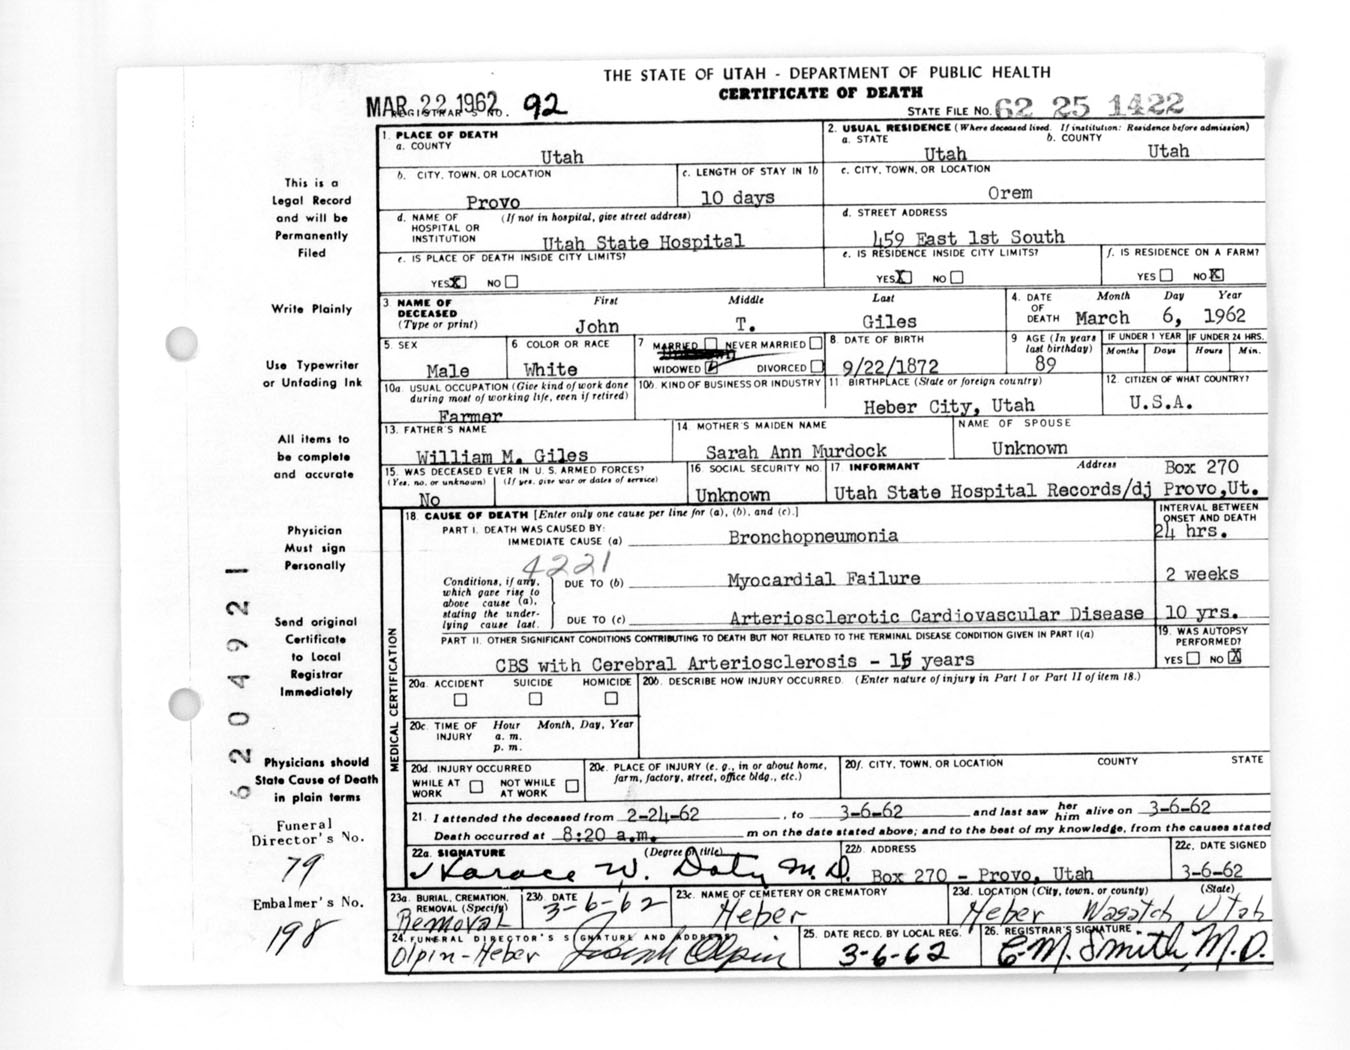 THE STATE OF UTAH - DEPARTMENT OF PUBLIC HEALTH
CERTIFICATE OF DEATH
MAR 22 1962
REGISTRAR'S NO. 92
STATE FILE NO. 62 25 1422
This is a
Legal Record
and will be
Permanently
Filed
Write Plainly
Use Typewriter
or Unfading Ink
All items to
be complete
and accurate
Physician
Must sign
Personally
Send original
Certificate
to Local
Registrar
Immediately
Physicians should
State Cause of Death
in plain terms
Funeral
Director's No.
79
Embalmer's No.
198
6204921
1. PLACE OF DEATH
a. COUNTY
Utah
2. USUAL RESIDENCE (Where deceased lived. If institution: Residence before admission)
a. STATE b. COUNTY
Utah Utah
b. CITY, TOWN, OR LOCATION
Provo
c. LENGTH OF STAY IN 1b
10 days
c. CITY, TOWN, OR LOCATION
Orem
d. NAME OF (If not in hospital, give street address)
HOSPITAL OR
INSTITUTION Utah State Hospital
d. STREET ADDRESS
459 East 1st South
e. IS PLACE OF DEATH INSIDE CITY LIMITS?
YES X NO
e. IS RESIDENCE INSIDE CITY LIMITS?
YES X NO
f. IS RESIDENCE ON A FARM?
YES NO X
3 NAME OF First Middle Last
DECEASED
(Type or print) John T. Giles
4. DATE Month Day Year
OF
DEATH March 6, 1962
5. SEX
Male
6 COLOR OR RACE
White
7 MARRIED NEVER MARRIED
WIDOWED DIVORCED
8. DATE OF BIRTH
9/22/1872
9 AGE (In years
last birthday)
89
IF UNDER 1 YEAR IF UNDER 24 HRS.
Months Days Hours Min.
10a. USUAL OCCUPATION (Give kind of work done
during most of working life, even if retired)
Farmer
10b. KIND OF BUSINESS OR INDUSTRY
11 BIRTHPLACE (State or foreign country)
Heber City, Utah
12 CITIZEN OF WHAT COUNTRY?
U.S.A.
13. FATHER'S NAME
William M. Giles
14 MOTHER'S MAIDEN NAME
Sarah Ann Murdock
NAME OF SPOUSE
Unknown
15. WAS DECEASED EVER IN U. S. ARMED FORCES?
(Yes, no, or unknown) (If yes, give war or dates of service)
No
16. SOCIAL SECURITY NO.
Unknown
17 INFORMANT Address Box 270
Utah State Hospital Records/dj Provo,Ut.
MEDICAL CERTIFICATION
18. CAUSE OF DEATH [Enter only one cause per line for (a), (b), and (c).]
INTERVAL BETWEEN
ONSET AND DEATH
PART I. DEATH WAS CAUSED BY:
IMMEDIATE CAUSE (a) Bronchopneumonia 24 hrs.
4221
Conditions, if any,
which gave rise to
above cause (a),
stating the under-
lying cause last.
DUE TO (b) Myocardial Failure 2 weeks
DUE TO (c) Arteriosclerotic Cardiovascular Disease 10 yrs.
PART II. OTHER SIGNIFICANT CONDITIONS CONTRIBUTING TO DEATH BUT NOT RELATED TO THE TERMINAL DISEASE CONDITION GIVEN IN PART I(a)
CBS with Cerebral Arteriosclerosis - 15 years
19. WAS AUTOPSY
PERFORMED?
YES NO X
20a. ACCIDENT SUICIDE HOMICIDE
20b. DESCRIBE HOW INJURY OCCURRED. (Enter nature of injury in Part I or Part II of item 18.)
20c. TIME OF Hour Month, Day, Year
INJURY a. m.
p. m.
20d. INJURY OCCURRED
WHILE AT NOT WHILE
WORK AT WORK
20e. PLACE OF INJURY (e. g., in or about home,
farm, factory, street, office bldg., etc.)
20f. CITY, TOWN, OR LOCATION COUNTY STATE
21. I attended the deceased from 2-24-62, to 3-6-62 and last saw her him alive on 3-6-62
Death occurred at 8:20 a.m. m on the date stated above; and to the best of my knowledge, from the causes stated
22a. SIGNATURE (Degree or title)
Horace W. Doty M.D.
22b. ADDRESS
Box 270 - Provo, Utah
22c. DATE SIGNED
3-6-62
23a. BURIAL, CREMATION,
REMOVAL (Specify)
Removal
23b. DATE
3-6-62
23c. NAME OF CEMETERY OR CREMATORY
Heber
23d. LOCATION (City, town, or county) (State)
Heber Wasatch Utah
24. FUNERAL DIRECTOR'S SIGNATURE AND ADDRESS
Olpin-Heber Joseph Olpin
25. DATE RECD. BY LOCAL REG.
3-6-62
26. REGISTRAR'S SIGNATURE
E. M. Smith, M.D.